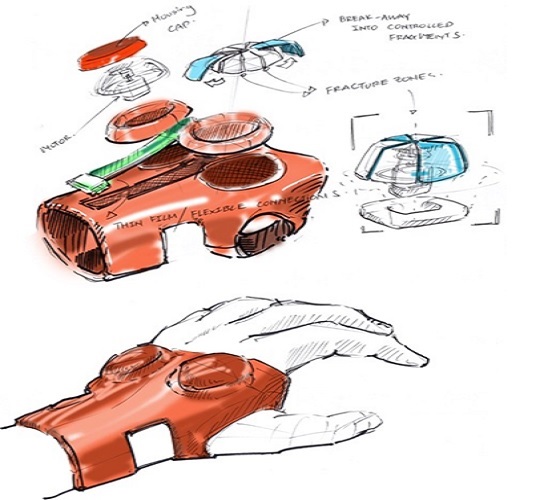 HOUSING
CAP.
BREAK-AWAY
INTO CONTROLLED
FRAGMENTS.
FRACTURE ZONES.
MOTOR
THIN FILM/FLEXIBLE CONNECTIONS.